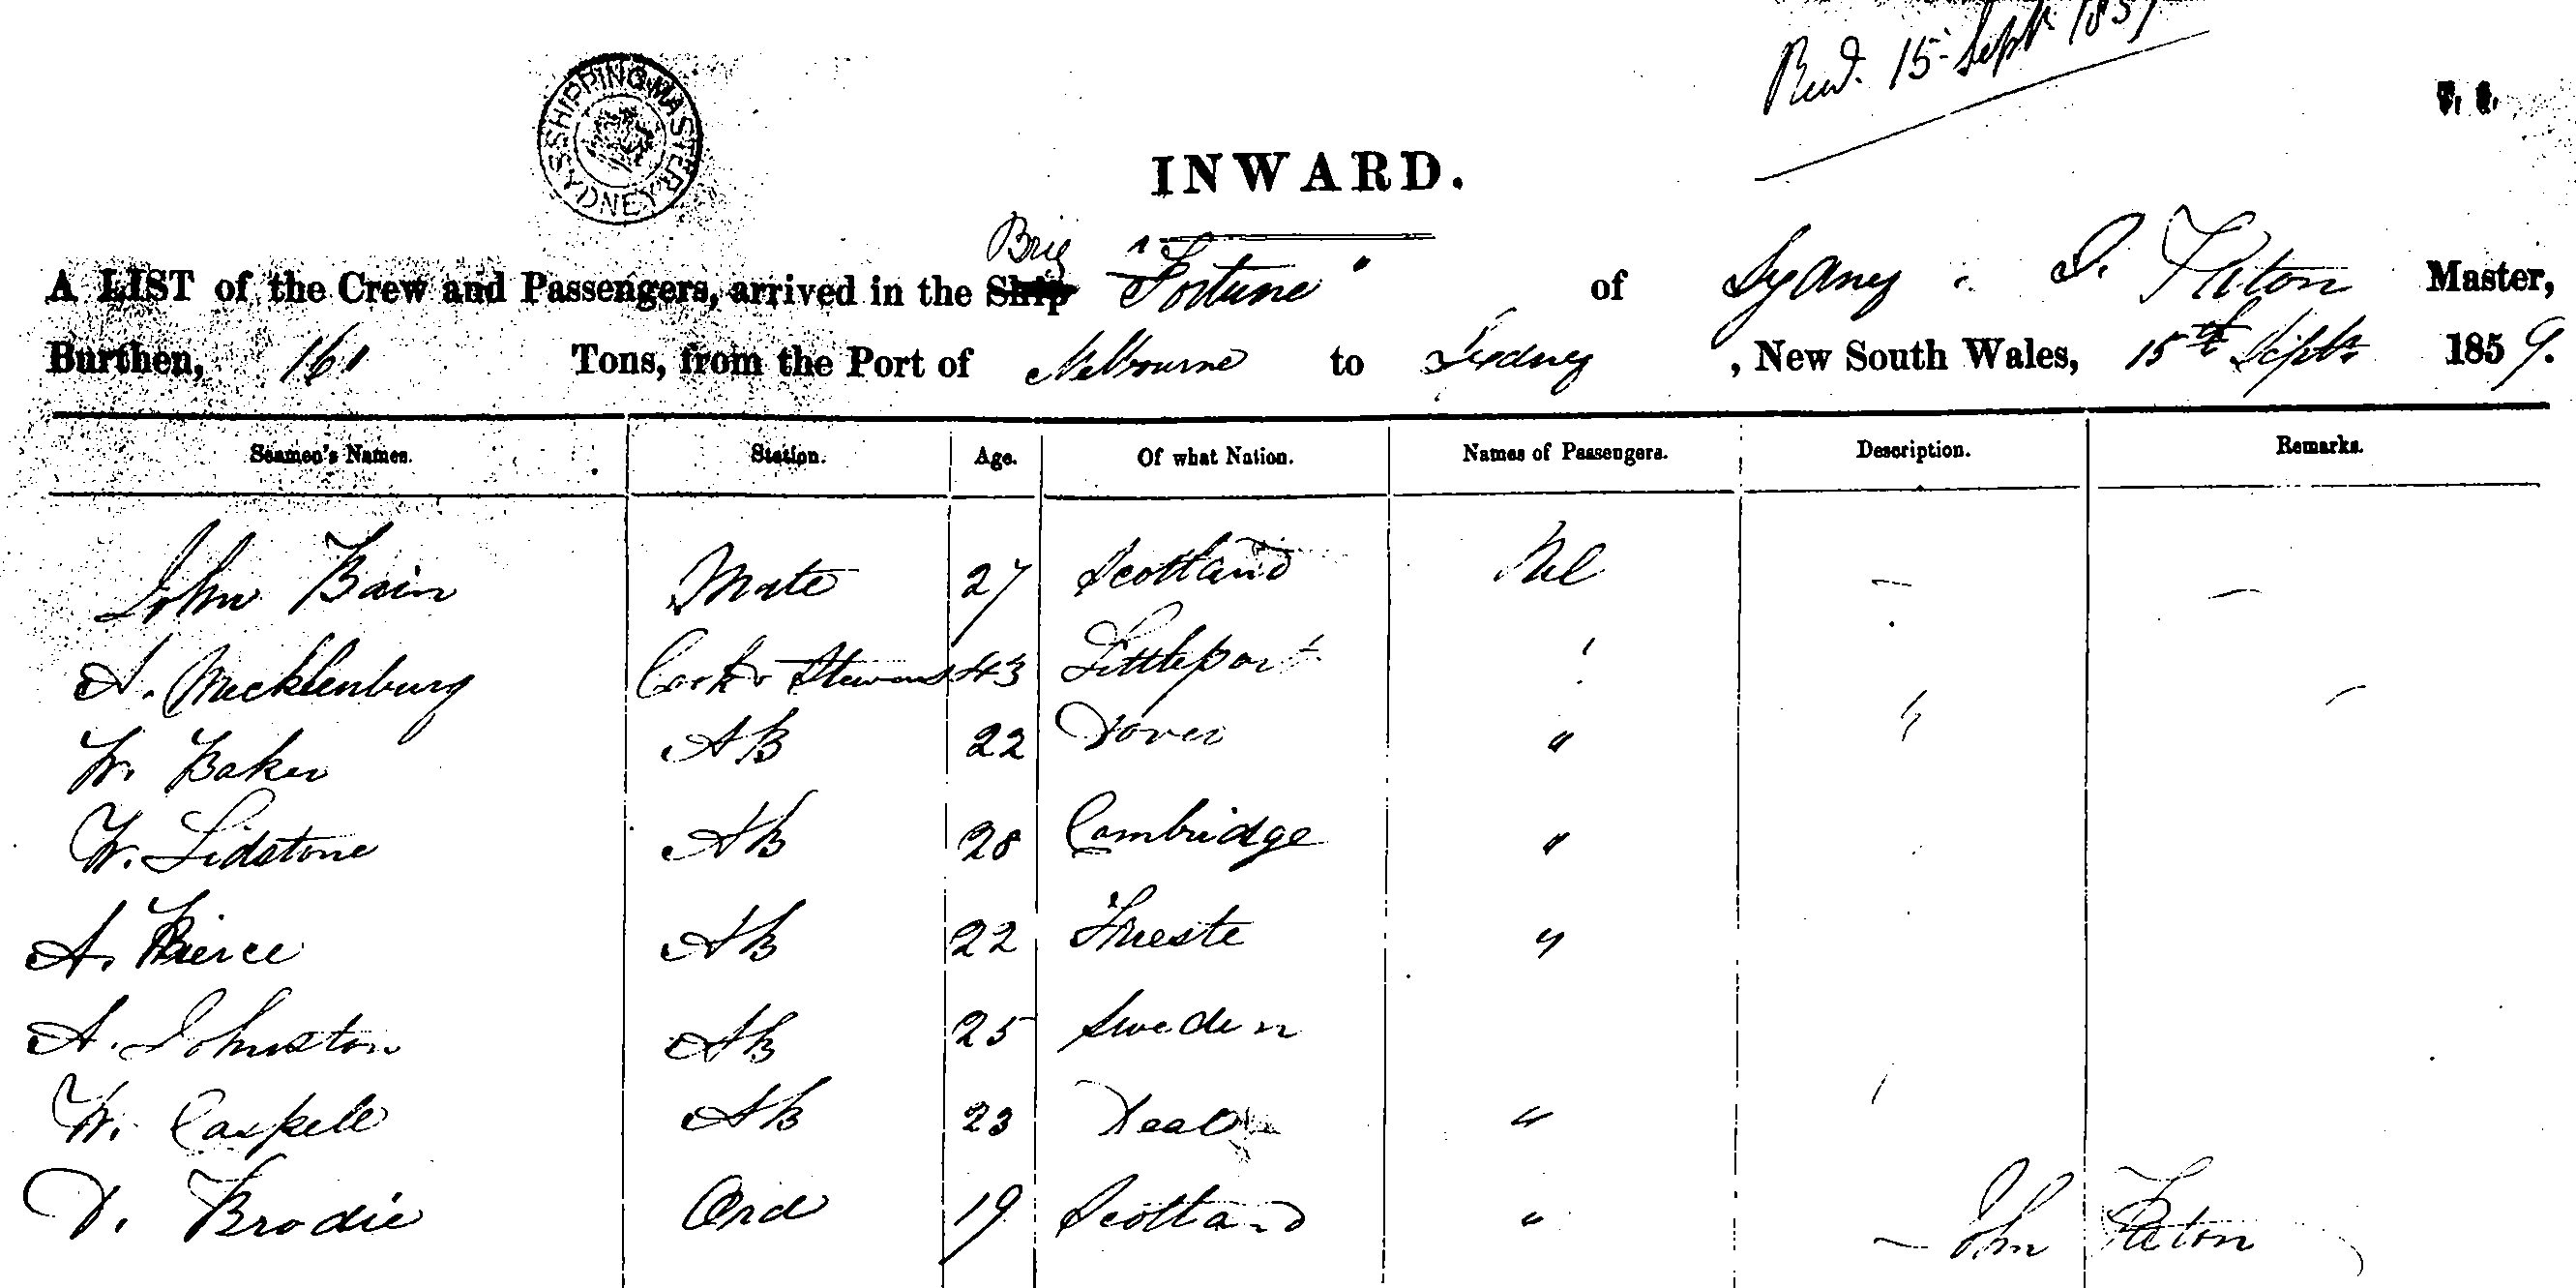 Recd. 15 Sept 1859
SHIPPING MASTER SYDNEY
INWARD.
A LIST of the Crew and Passengers, arrived in the Ship Brig "Fortune" of Sydney J. Paton Master,
Burthen, 161 Tons, from the Port of Melbourne to Sydney, New South Wales, 15th Septr 1859.
Seamen's Names. Station. Age. Of what Nation. Names of Passengers. Description. Remarks.
John Bain Mate 27 Scotland Nil
A. Mecklenburg Cook & Steward 43 Littleport
W. Baker AB 22 Dover "
W. Lidstone AB 28 Cambridge "
A. Pierce AB 22 Trieste "
A. Johnston AB 25 Sweden
W. Caspell AB 23 Deal "
D. Brodie Ord 19 Scotland "
John Paton